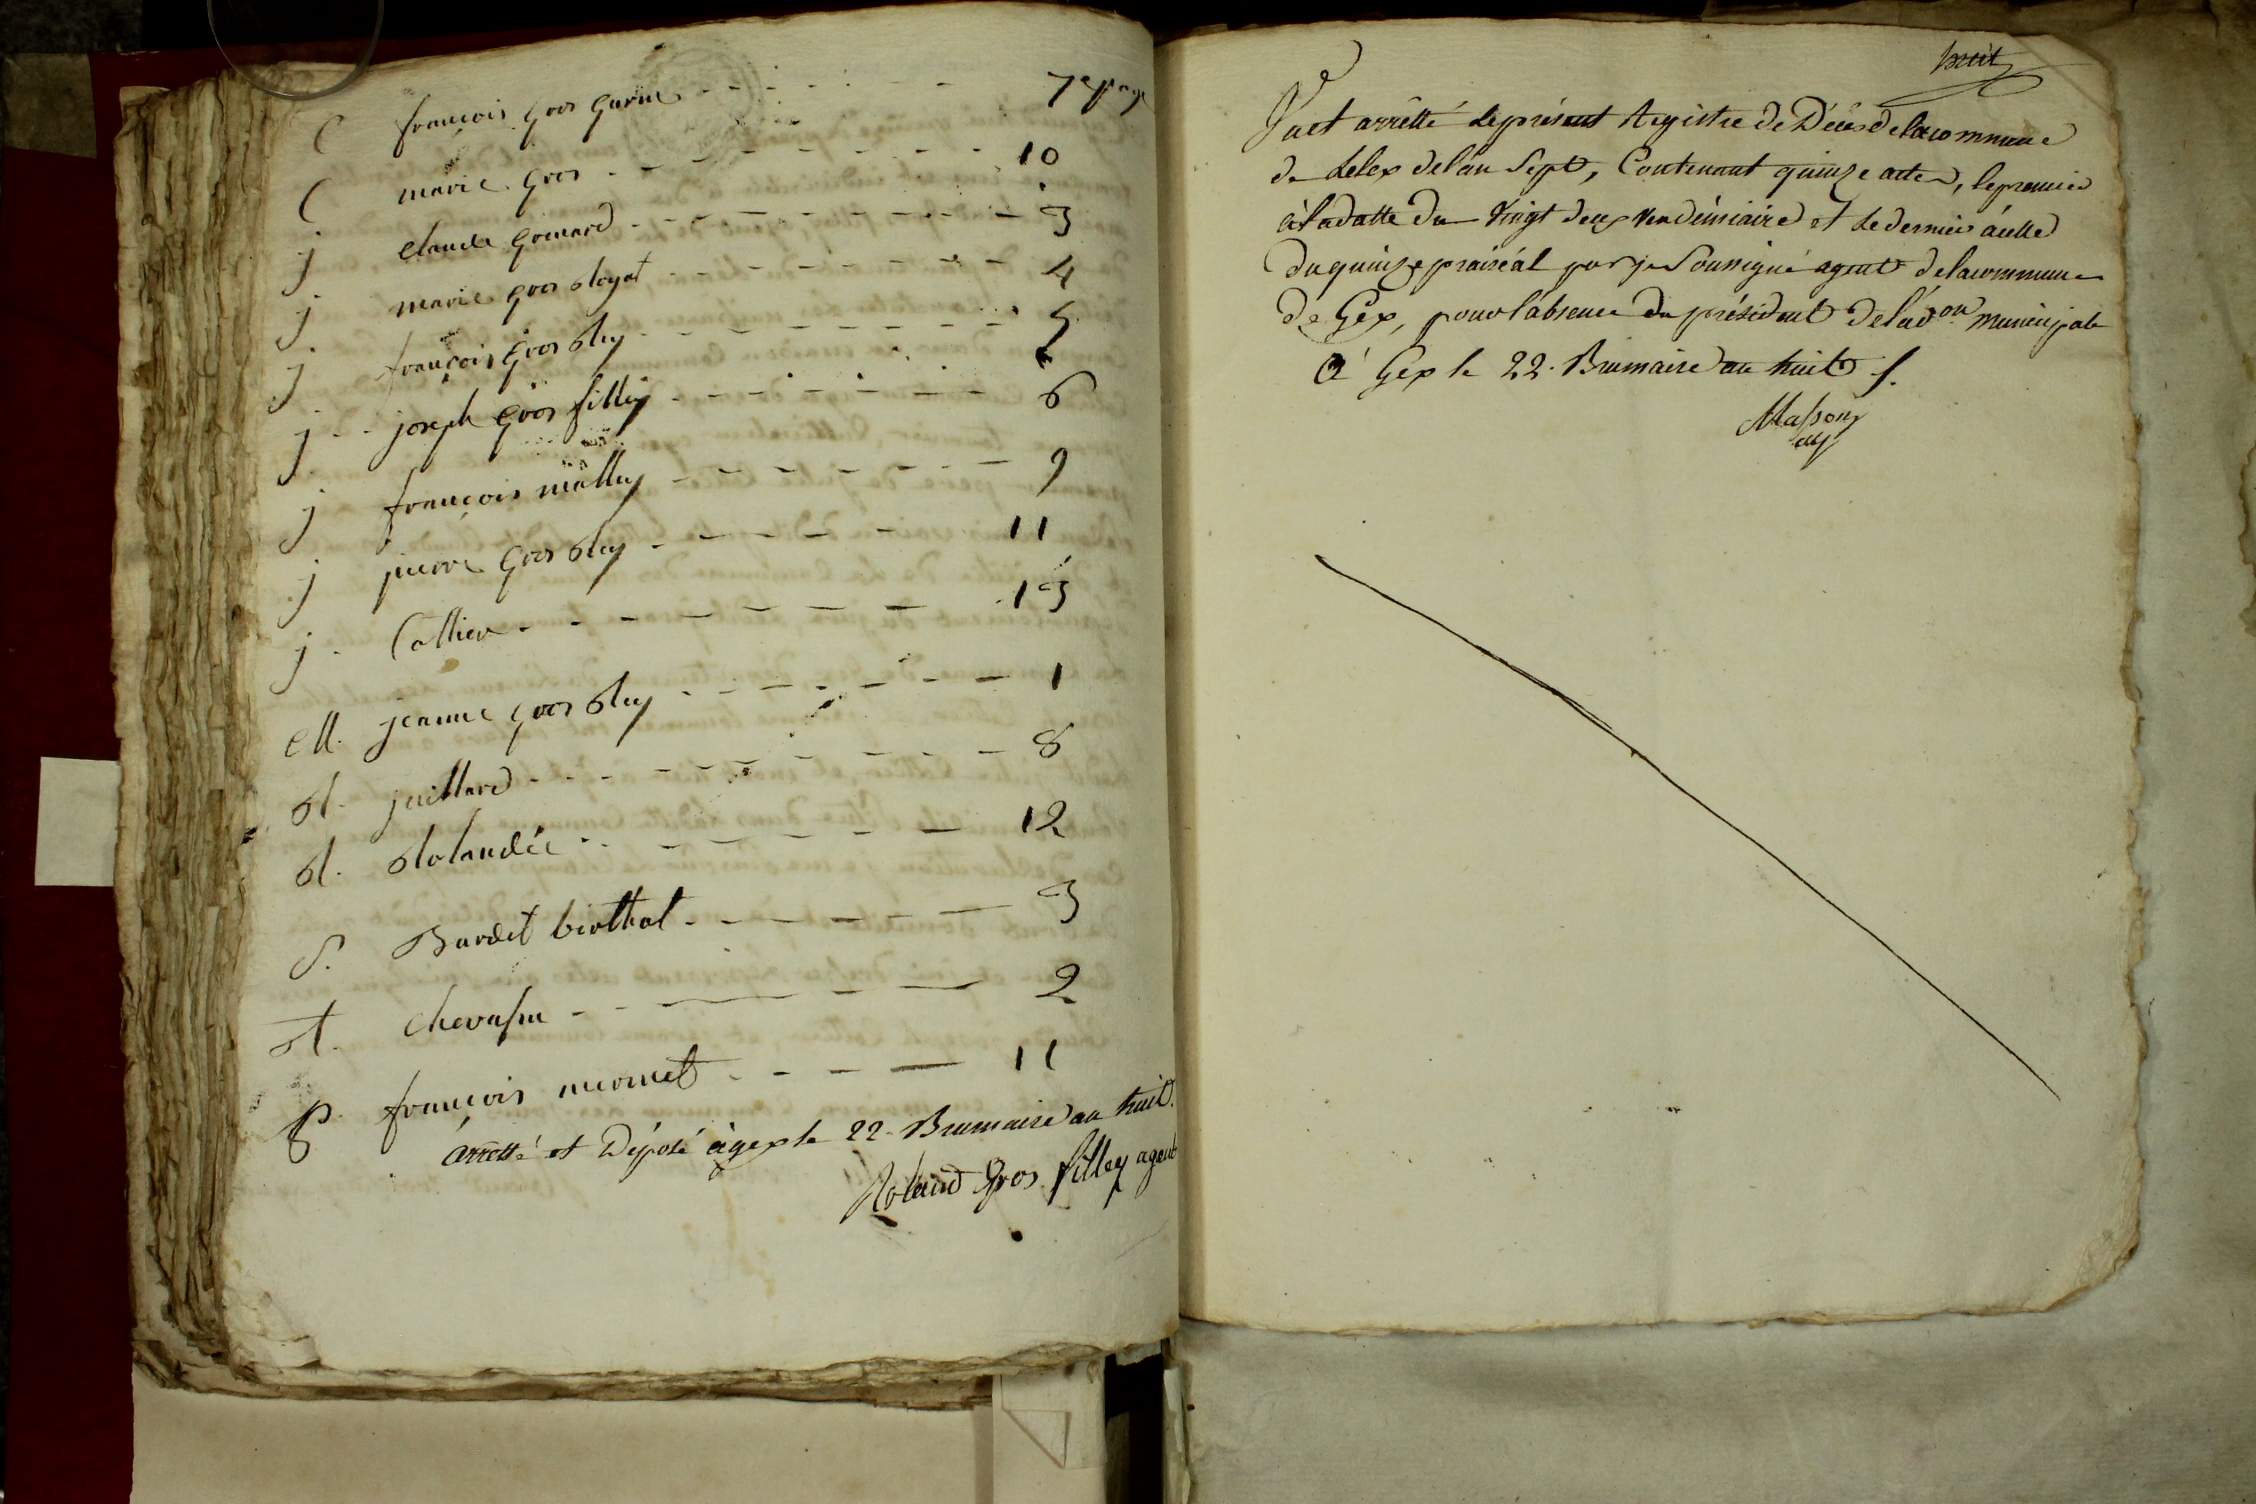 C françois gros gurin 7e page
C marie gros 10
j claude grenard 3
j marie gros Royat 4
j françois gros Rey 5
j joseph gros filley 6
j françois mälley 9
j pierre gros Rey 11
j Collier 13
M. jeanne gros Rey 1
R. juillard 8
R. Rolandée 12
S. Burdet berthet 3
T. Chevassu 2
françois mermet 11
arretté et Déposé à gex le 22. Brumaire an huit.
Roland Gros filley agent
huit
Vu et arrêtté le présent Registre de Décès de la commune
de Lelex de l'an Sept, Contenant quinze actes, le premier
à la datte du Vingt deux Vendémiaire et le dernier à celle
du quinze prairéal par je Soussigné agent de la commune
de Gex, pour l'absence du président de l'adon municipale
A Gex le 22. Brumaire an huit /.
Masson
ag